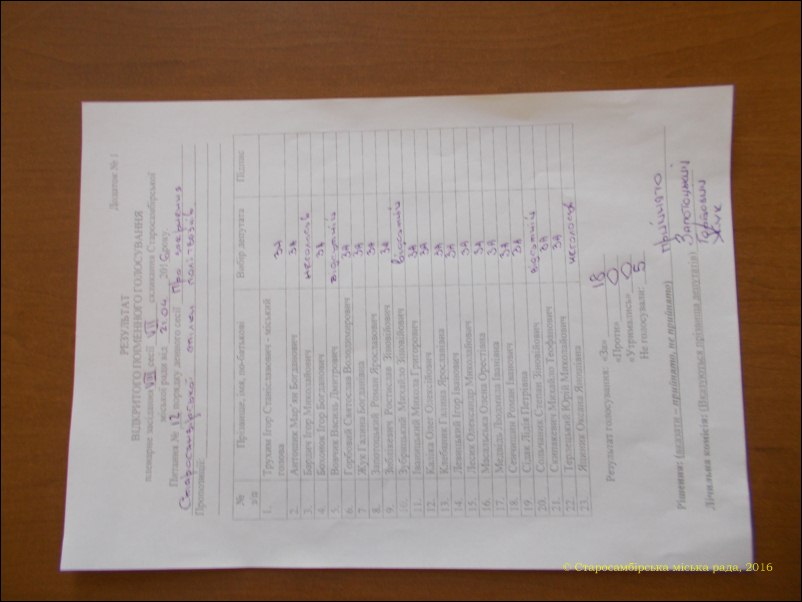 Додаток № 1
РЕЗУЛЬТАТ
ВІДКРИТОГО ПОІМЕННОГО ГОЛОСУВАННЯ
пленарне засідання VIII сесії VII скликання Старосамбірської
міської ради від 21.04. 2016 року
Питання № 12 порядку денного сесії Про закриття
Старосамбірської
Пропозиції:
№ п/п Прізвище, ім'я, по-батькові Вибір депутата Підпис
1. Трухим Ігор Станіславович - міський голова за
2. Антоник Мар'ян Богданович за
3. Ігор Миколайович не голосув
4. Ігор Богданович за
5. Василь Дмитрович відсутній
6. Горбовий Святослав Володимирович за
7. Жук Галина Богданівна за
8. Запотоцький Роман Ярославович за
9. Ростислав Зіновійович за
10. Зубрицький Михайло Зіновійович відсутній
11. Іваницький Микола Григорович за
12. Олег Олексійович за
13. Ганна Ярославівна за
14. Левицький Ігор Іванович за
15. Лесик Олександр Миколайович за
16. Олена Орестівна за
17. Медвідь Людмила Іванівна за
18. Сенчишин Роман Іванович за
19. Сідак Лідія Петрівна відсутній
20. Степан Зіновійович за
21. Михайло Теофанович за
22. Терлецький Юрій Миколайович не голосув
23. Яцишин Оксана Яковівна
Результат голосування: «За» 18
«Проти» 0
«Утримались» 0
Не голосували: 5
Рішення: (вказати – прийнято, не прийнято) Прийнято
Лічильна комісія: (Вказуються прізвища депутатів) Запотоцький
Горбовий
Жук
© Старосамбірська міська рада, 2016